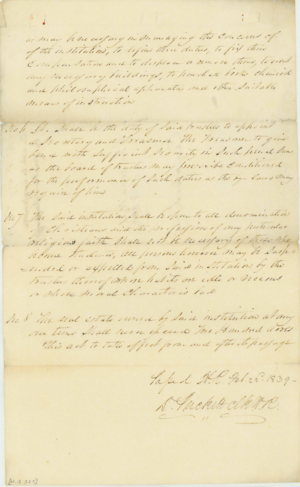 as may be necessary in managing the concerns of
of the institution, to define their duties, to fix their
Compensation and to dispose a
any necessary buildings, to purchase books chemical
and Philosophical aparatus and other Suitable
means of instruction
Sec 6 It Shall be the duty of said trustees to appoint
a Secretary and Treasurer the Treasurer to give
bond with Sufficient Security in Such penal Sum
as the board of trustees may prescribe Conditioned
for the performance of Such duties as the
require of him
Sec 7 The Said institution Shall be open to all denominations
of Christians and the profession of any particular
religious faith Shall not be necessary
Students, all persons however may be Suspended
or expelled from Said institution by the
trustees thereof whose habits are idle or vicious
or whose moral Character is bad
Sec 8 The real estate owned by Said institution at any
one time Shall never exceed two hundred acres
this act to take effect from and after its passage
Passed H.R. Feb 23rd 1839